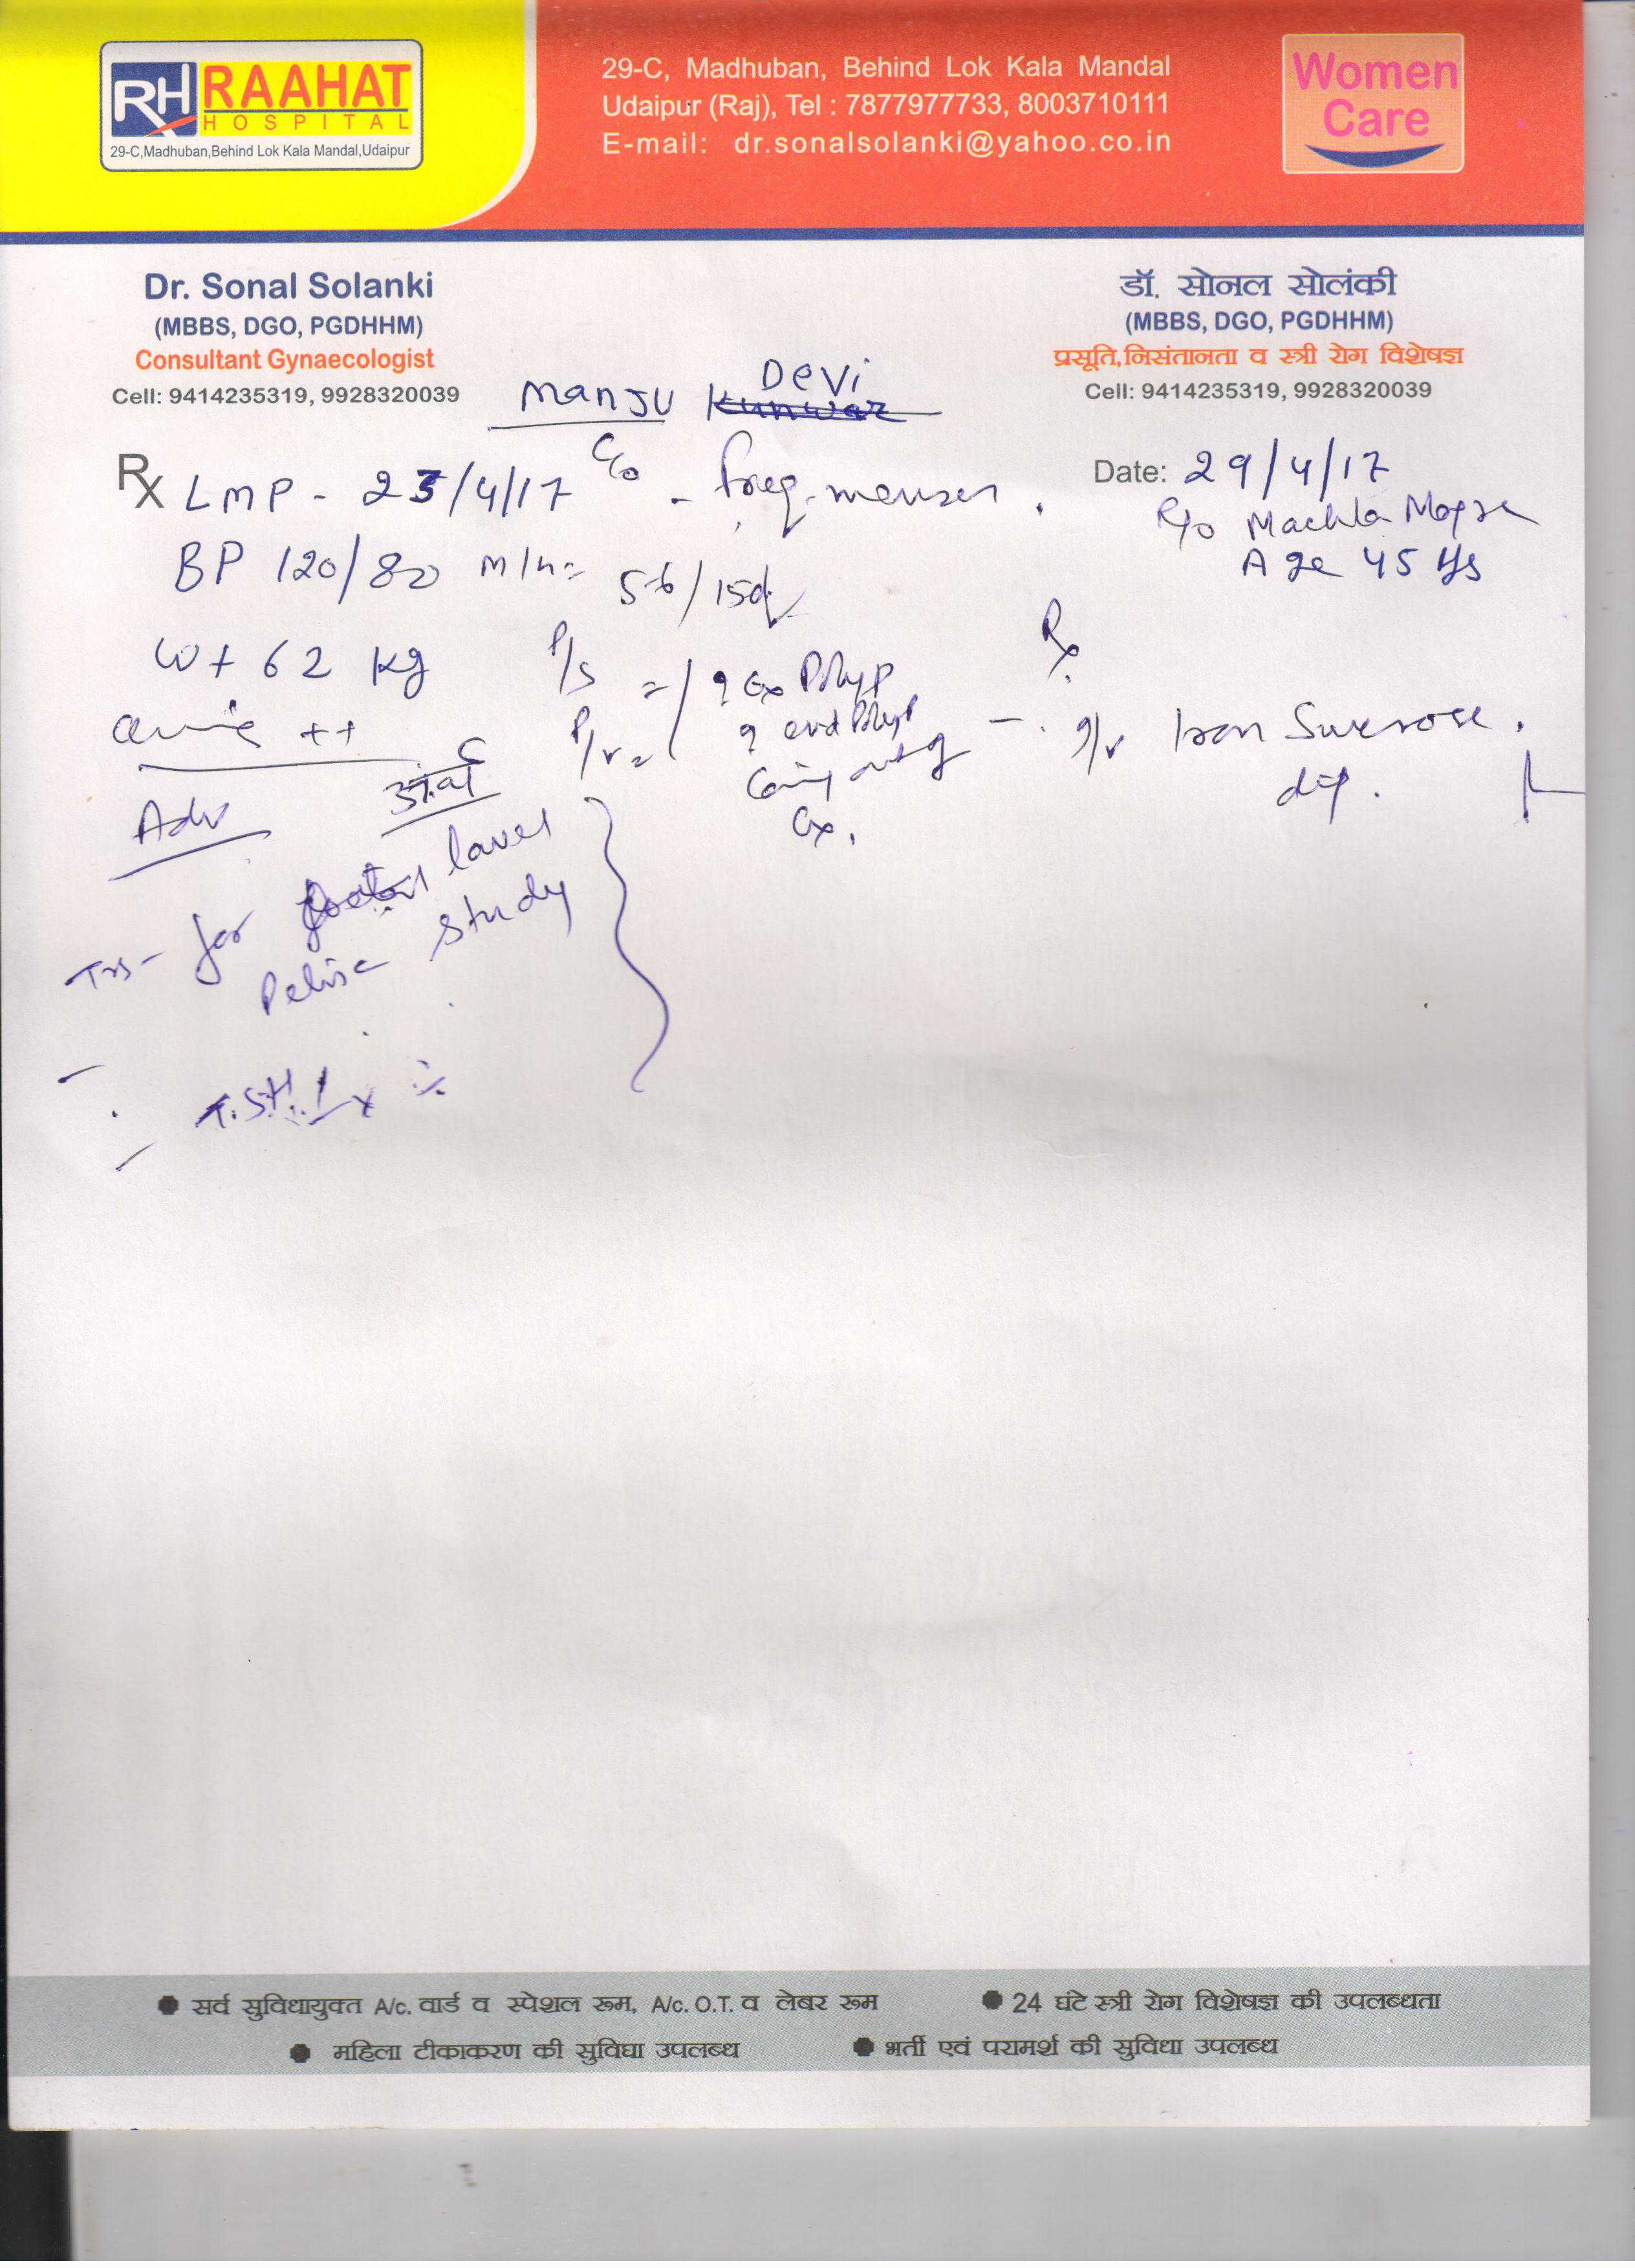 RH RAAHAT
HOSPITAL
29-C,Madhuban,Behind Lok Kala Mandal,Udaipur
29-C, Madhuban, Behind Lok Kala Mandal
Udaipur (Raj), Tel : 7877977733, 8003710111
E-mail: dr.sonalsolanki@yahoo.co.in
Women
Care
Dr. Sonal Solanki
(MBBS, DGO, PGDHHM)
Consultant Gynaecologist
Cell: 9414235319, 9928320039
डॉ. सोनल सोलंकी
(MBBS, DGO, PGDHHM)
प्रसूति,निसंतानता व स्त्री रोग विशेषज्ञ
Cell: 9414235319, 9928320039
Manju Kunwar Devi
Rx LMP - 23/4/17 C/o - freq. menses.
Date: 29/4/17
R/o Machla Magra
Age 45 Ys
BP 120/80 M/H= 5-6/15d
Wt 62 Kg
P/S = ? Cx Polyp
P/V = ? end Polyp
Coming out of
Cx.
++
Rx
- I/V Iron Sucrose.
dip.
Adv
TVS - for
Pelvic study
T.S.H.
सर्व सुविधायुक्त A/c. वार्ड व स्पेशल रूम, A/c. O.T. व लेबर रूम
24 घंटे स्त्री रोग विशेषज्ञ की उपलब्धता
महिला टीकाकरण की सुविधा उपलब्ध
भर्ती एवं परामर्श की सुविधा उपलब्ध